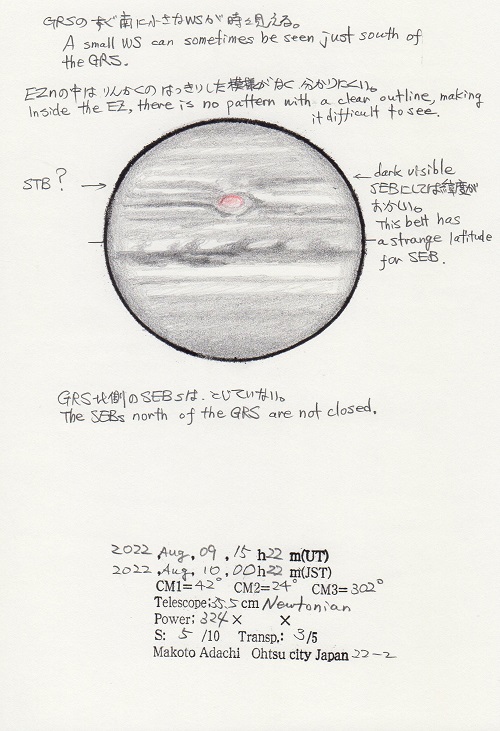 GRSのすぐ南に小さなWSが時々見える。
A small WS can sometimes be seen just south of
the GRS.
EZnの中はりんかくのはっきりした模様がなく分かりにくい。
Inside the EZ, there is no pattern with a clear outline, making
it difficult to see.
STB?
dark visible
SEBにしては緯度が
おかしい。
This belt has
a strange latitude
for SEB.
GRS北側のSEBsは、とじていない。
The SEBs north of the GRS are not closed.
2022, Aug, 09, 15 h 22 m(UT)
2022, Aug, 10, 00 h 22 m(JST)
CM1=42° CM2=24° CM3=302°
Telescope: 35.5 cm Newtonian
Power: 324× ×
S: 5 /10 Transp.: 3/5
Makoto Adachi Ohtsu city Japan 22-2